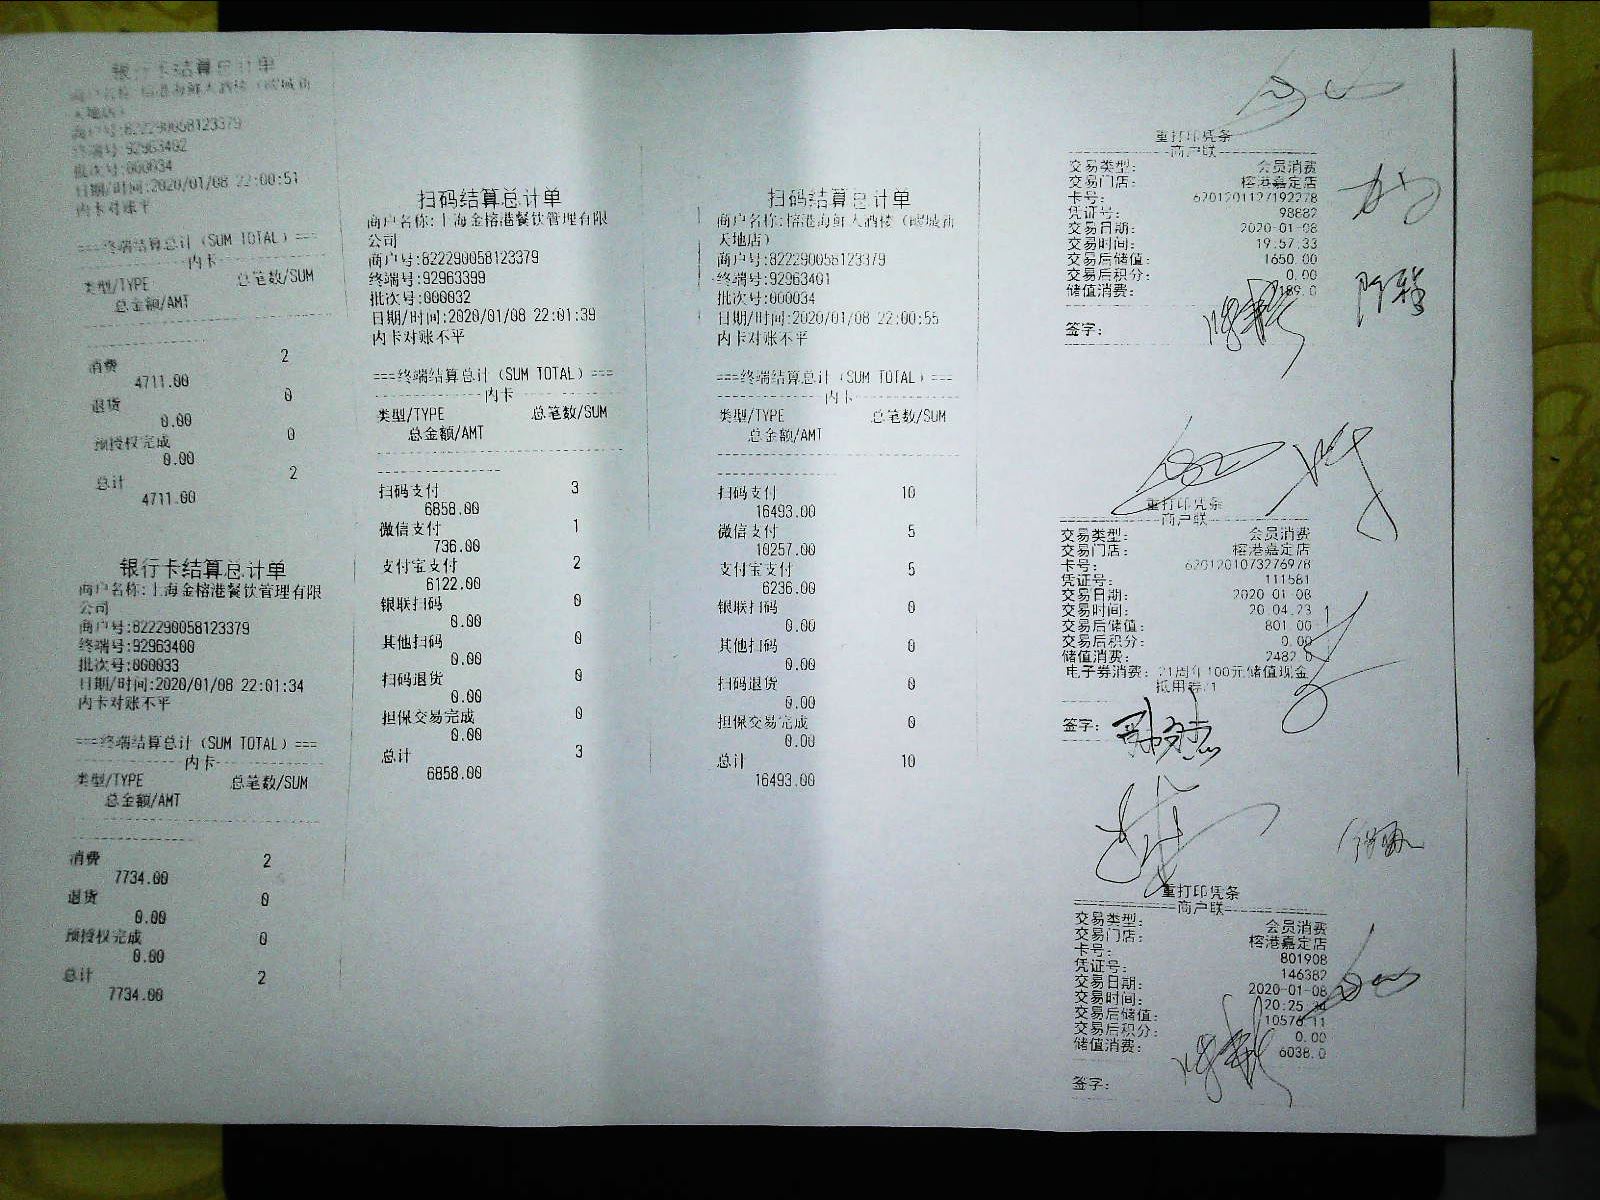 银行卡结算总计单
商户名称:榕港海鲜大酒楼（疁城新
天地店）
商户号:822290058123379
终端号:92963402
批次号:000034
日期/时间:2020/01/08 22:00:51
内卡对账平
===终端结算总计（SUM TOTAL）===
内卡
类型/TYPE 总笔数/SUM
总金额/AMT
消费 2
4711.00
退货 0
0.00
预授权完成 0
0.00
总计 2
4711.00
银行卡结算总计单
商户名称:上海金榕港餐饮管理有限
公司
商户号:822290058123379
终端号:92963400
批次号:000033
日期/时间:2020/01/08 22:01:34
内卡对账不平
===终端结算总计（SUM TOTAL）===
内卡
类型/TYPE 总笔数/SUM
总金额/AMT
消费 2
7734.00
退货 0
0.00
预授权完成 0
0.00
总计 2
7734.00
扫码结算总计单
商户名称:上海金榕港餐饮管理有限
公司
商户号:822290058123379
终端号:92963399
批次号:000032
日期/时间:2020/01/08 22:01:39
内卡对账不平
===终端结算总计（SUM TOTAL）===
内卡
类型/TYPE 总笔数/SUM
总金额/AMT
扫码支付 3
6858.00
微信支付 1
736.00
支付宝支付 2
6122.00
银联扫码 0
0.00
其他扫码 0
0.00
扫码退货 0
0.00
担保交易完成 0
0.00
总计 3
6858.00
扫码结算总计单
商户名称:榕港海鲜大酒楼（疁城新
天地店）
商户号:822290058123379
终端号:92963401
批次号:000034
日期/时间:2020/01/08 22:00:55
内卡对账不平
===终端结算总计（SUM TOTAL）===
内卡
类型/TYPE 总笔数/SUM
总金额/AMT
扫码支付 10
16493.00
微信支付 5
10257.00
支付宝支付 5
6236.00
银联扫码 0
0.00
其他扫码 0
0.00
扫码退货 0
0.00
担保交易完成 0
0.00
总计 10
16493.00
重打印凭条
商户联
交易类型: 会员消费
交易门店: 榕港嘉定店
卡号: 6201201127192278
凭证号: 98882
交易日期: 2020-01-08
交易时间: 19:57:33
交易后储值: 1650.00
交易后积分: 0.00
储值消费: 189.0
签字:
重打印凭条
商户联
交易类型: 会员消费
交易门店: 榕港嘉定店
卡号: 6201201073276978
凭证号: 111581
交易日期: 2020-01-08
交易时间: 20:04:23
交易后储值: 801.00
交易后积分: 0.00
储值消费: 2482.0
电子券消费: 21周年100元储值现金
抵用券/1
签字:
重打印凭条
商户联
交易类型: 会员消费
交易门店: 榕港嘉定店
卡号: 801908
凭证号: 146382
交易日期: 2020-01-08
交易时间: 20:25
交易后储值: 10576.11
交易后积分: 0.00
储值消费: 6038.0
签字: